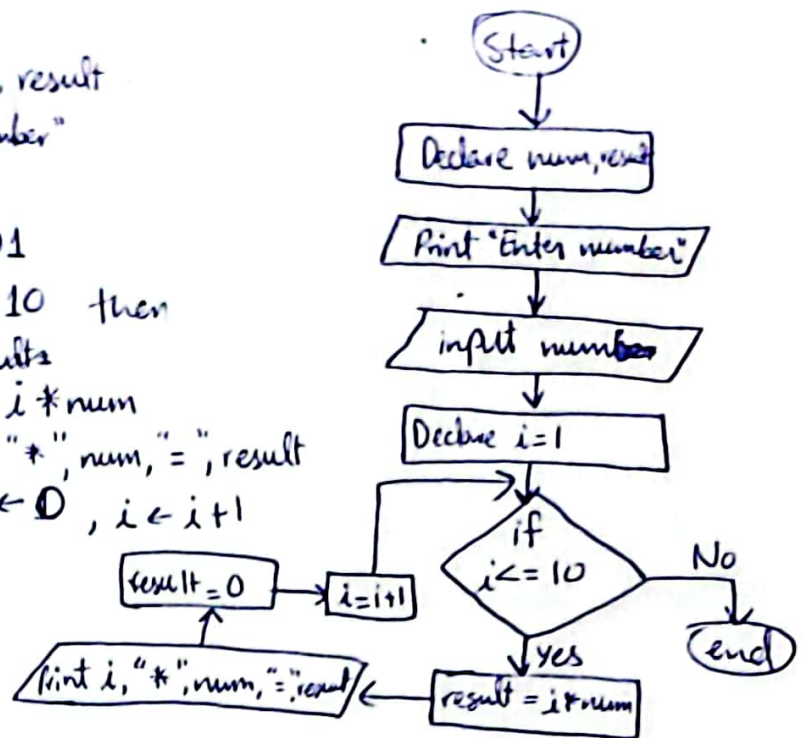 , result
mber"
01
10 then
i * num
"*", num, "=", result
← 0 , i ← i+1
Start
Declare num, result
Print "Enter number"
input num
Declare i=1
if
i<= 10
No
end
yes
result = i*num
Print i, "*", num, "=", result
result = 0
i=i+1